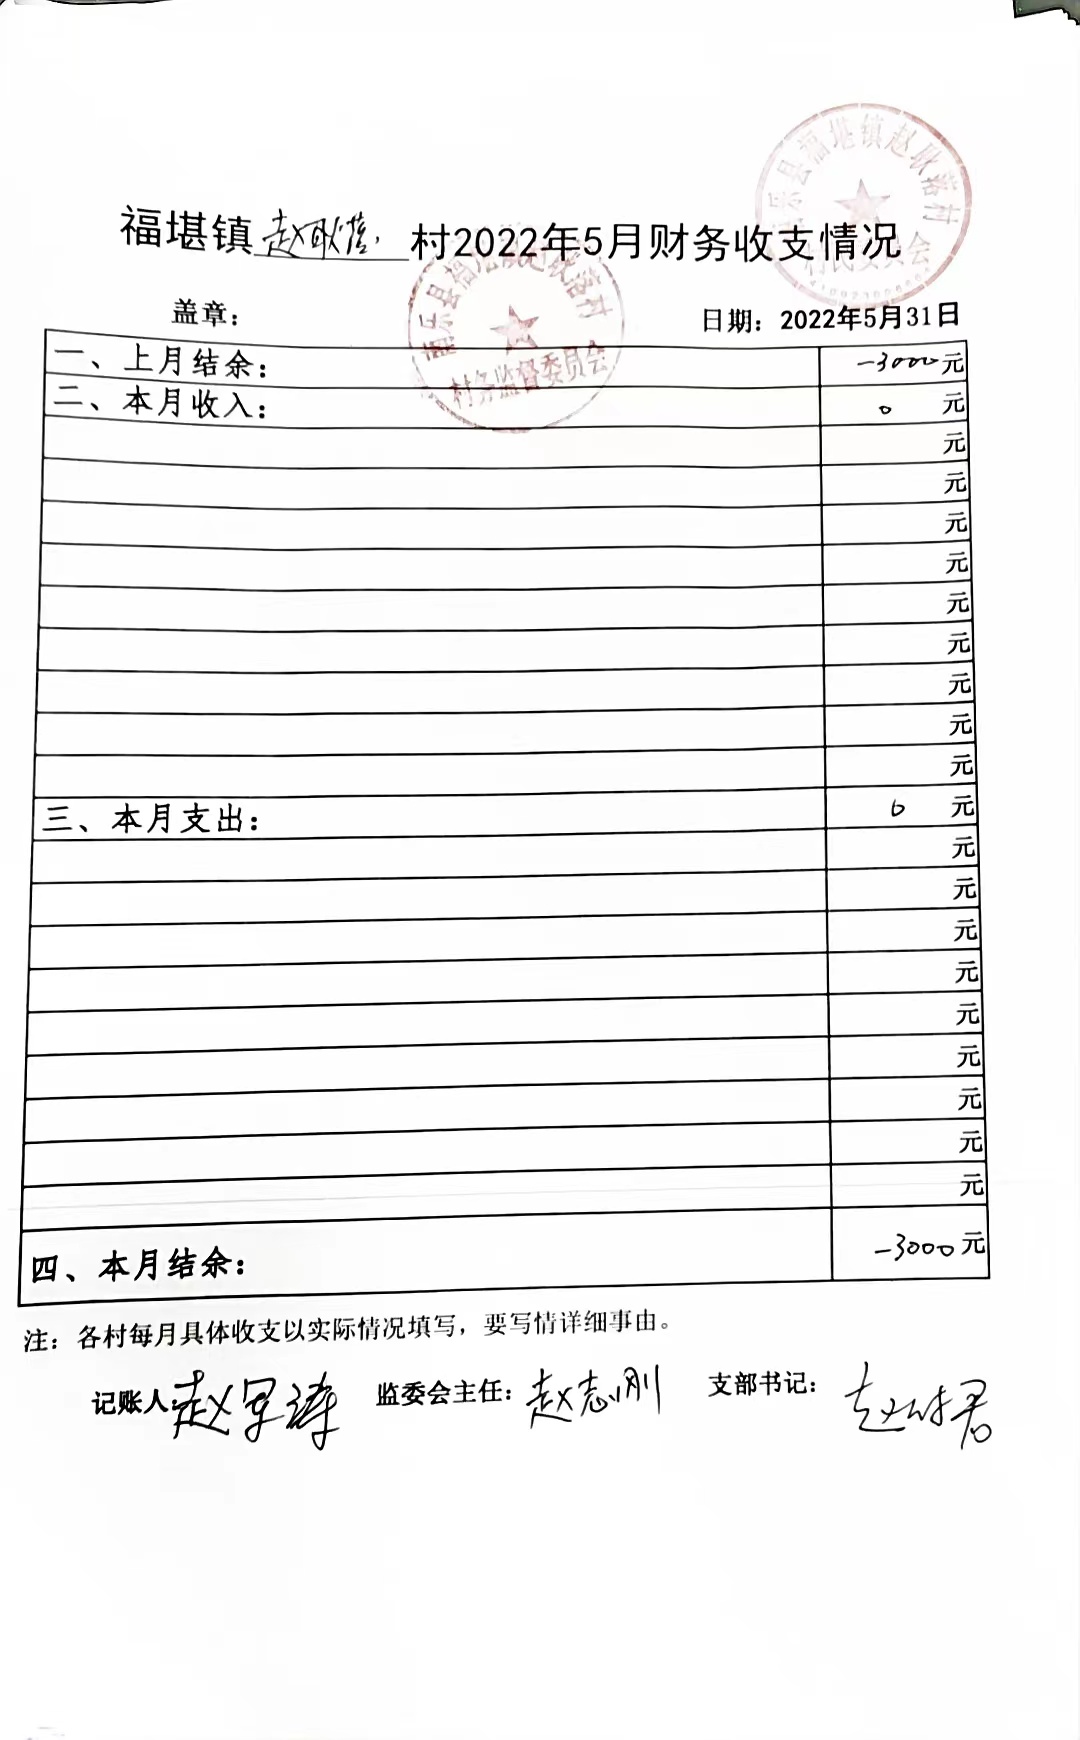 福堪镇赵耿落村2022年5月财务收支情况
南乐县福堪镇赵耿落村
村民委员会
南乐县福堪镇赵耿落村
村务监督委员会
盖章：
日期：2022年5月31日
一、上月结余： -3000元
二、本月收入： 0 元
元
元
元
元
元
元
元
元
元
三、本月支出： 0 元
元
元
元
元
元
元
元
元
元
四、本月结余： -3000元
注：各村每月具体收支以实际情况填写，要写情详细事由。
记账人： 监委会主任：赵志刚 支部书记：